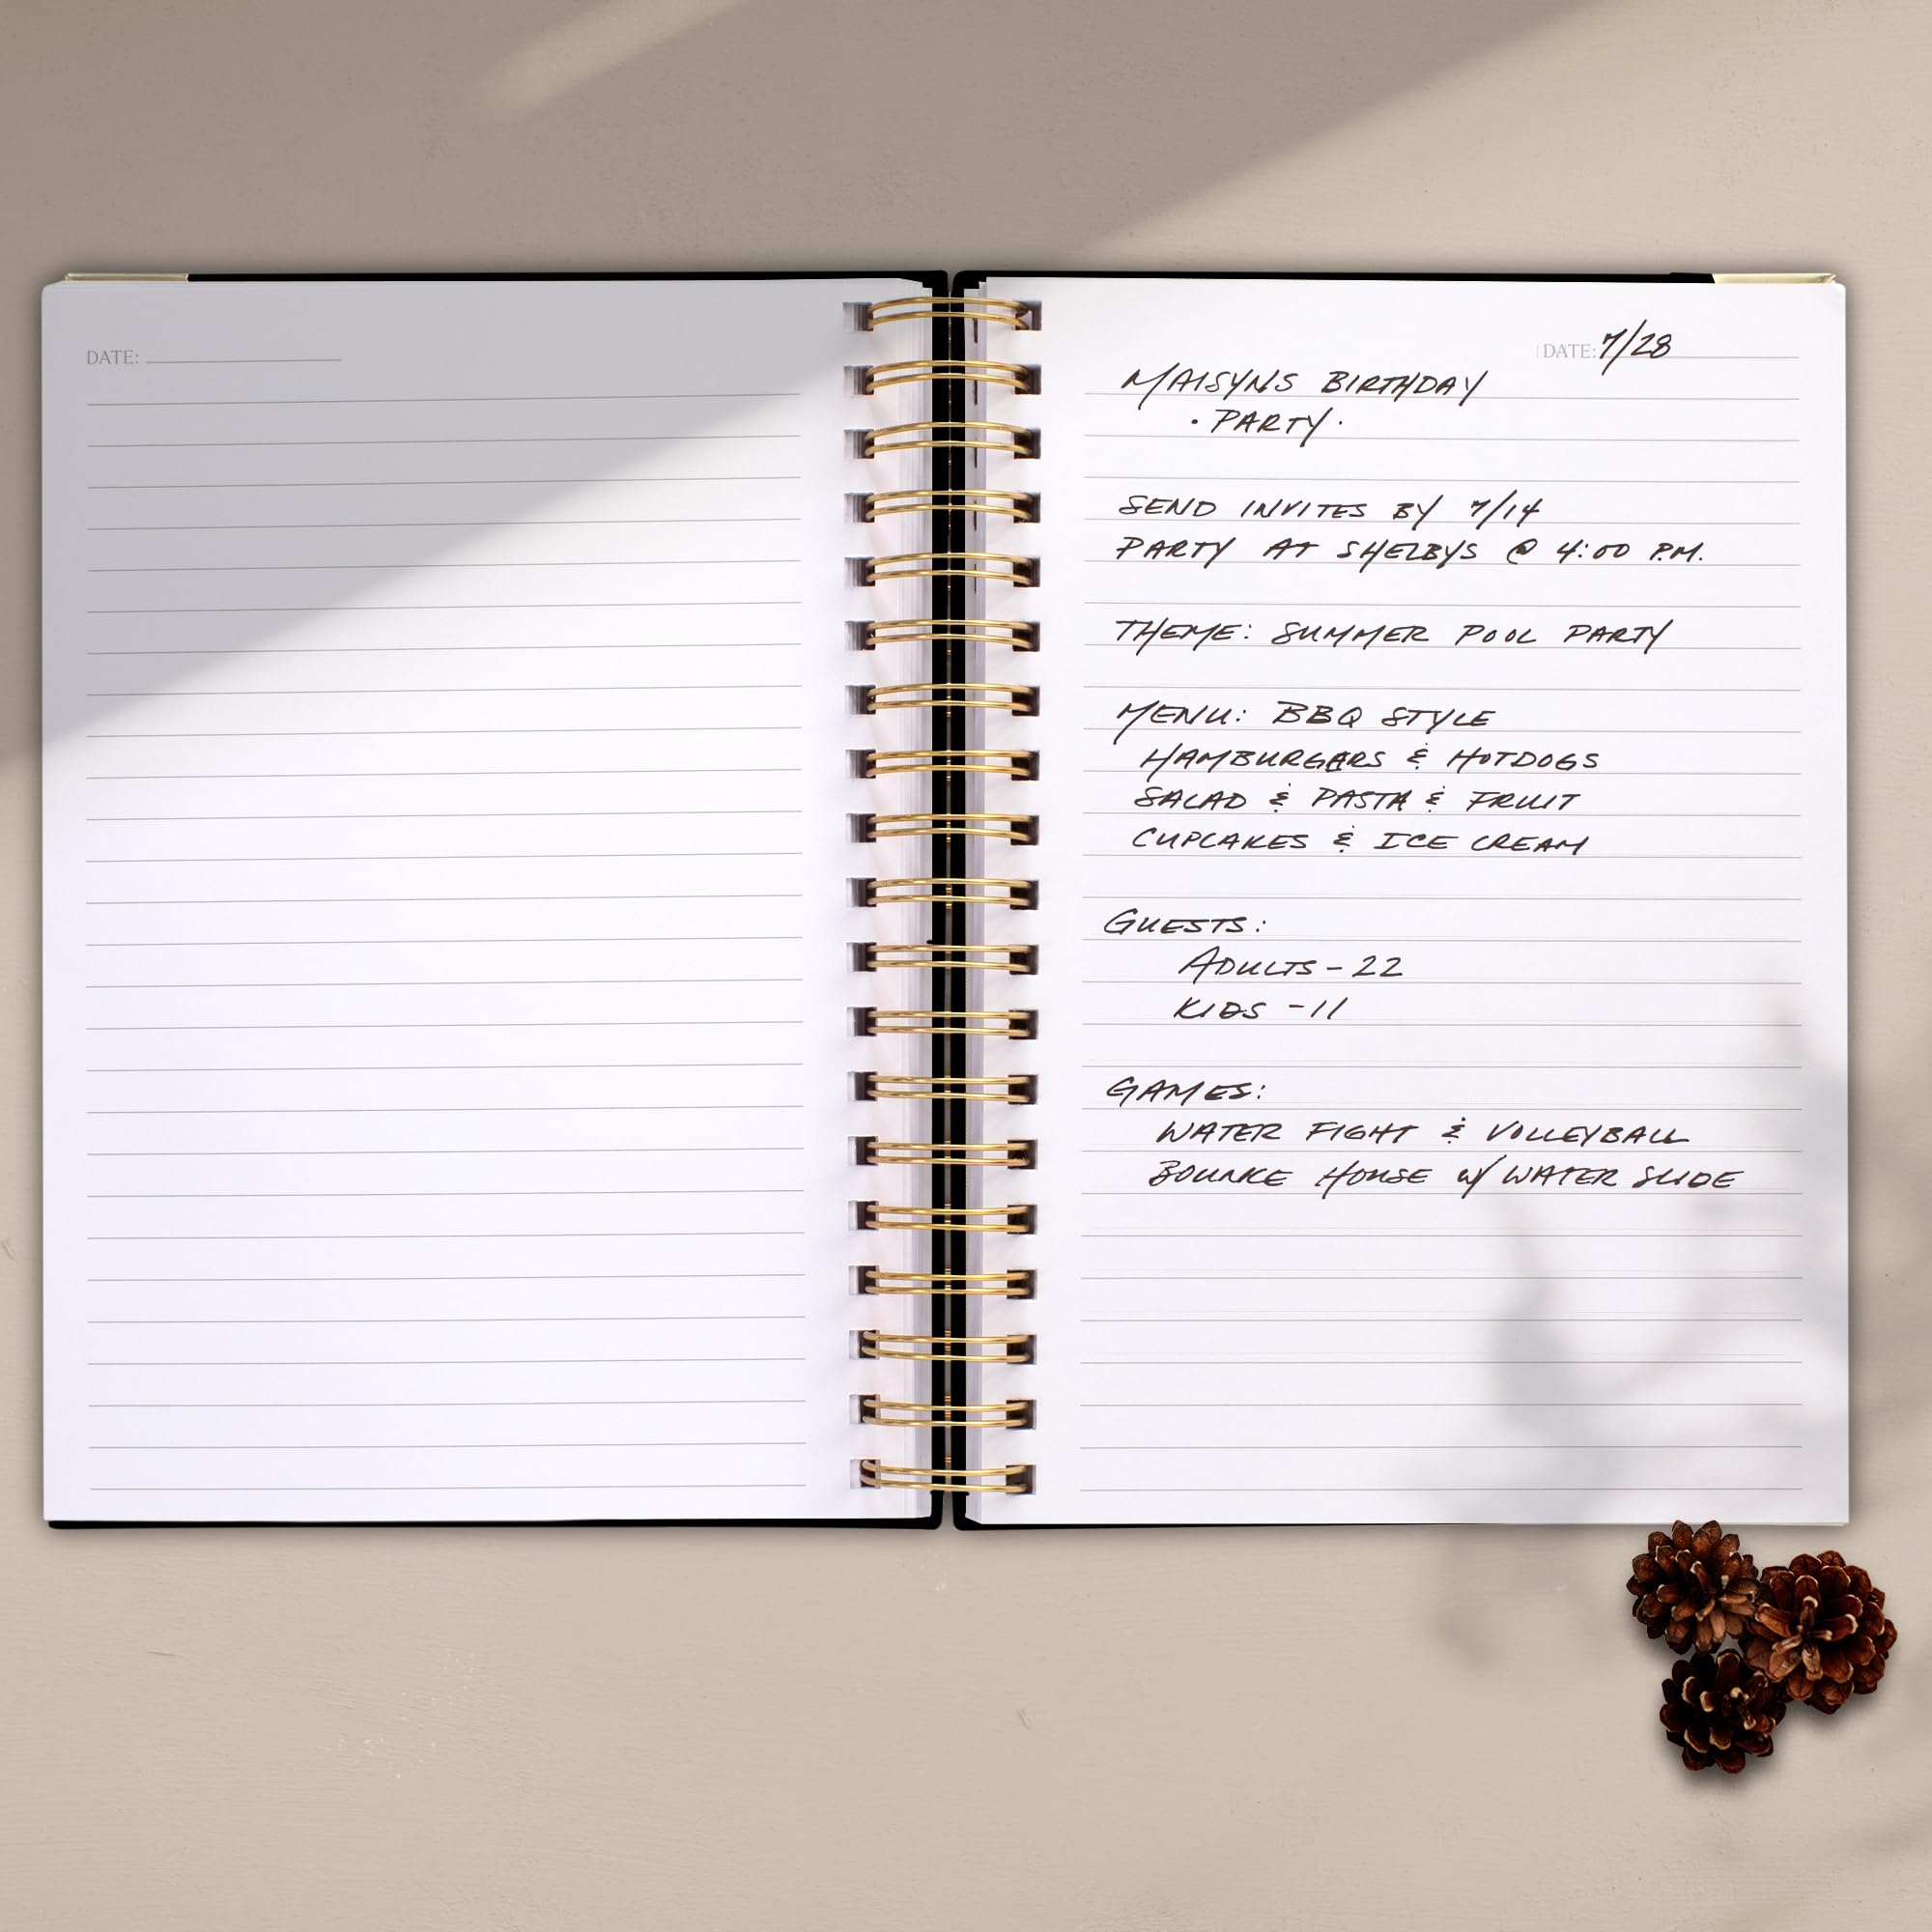 DATE:
DATE: 7/28
MAISYNS BIRTHDAY
· PARTY ·
SEND INVITES BY 7/14
PARTY AT SHELBYS @ 4:00 P.M.
THEME: SUMMER POOL PARTY
MENU: BBQ STYLE
HAMBURGERS & HOTDOGS
SALAD & PASTA & FRUIT
CUPCAKES & ICE CREAM
GUESTS:
ADULTS - 22
KIDS - 11
GAMES:
WATER FIGHT & VOLLEYBALL
BOUNCE HOUSE w/ WATER SLIDE